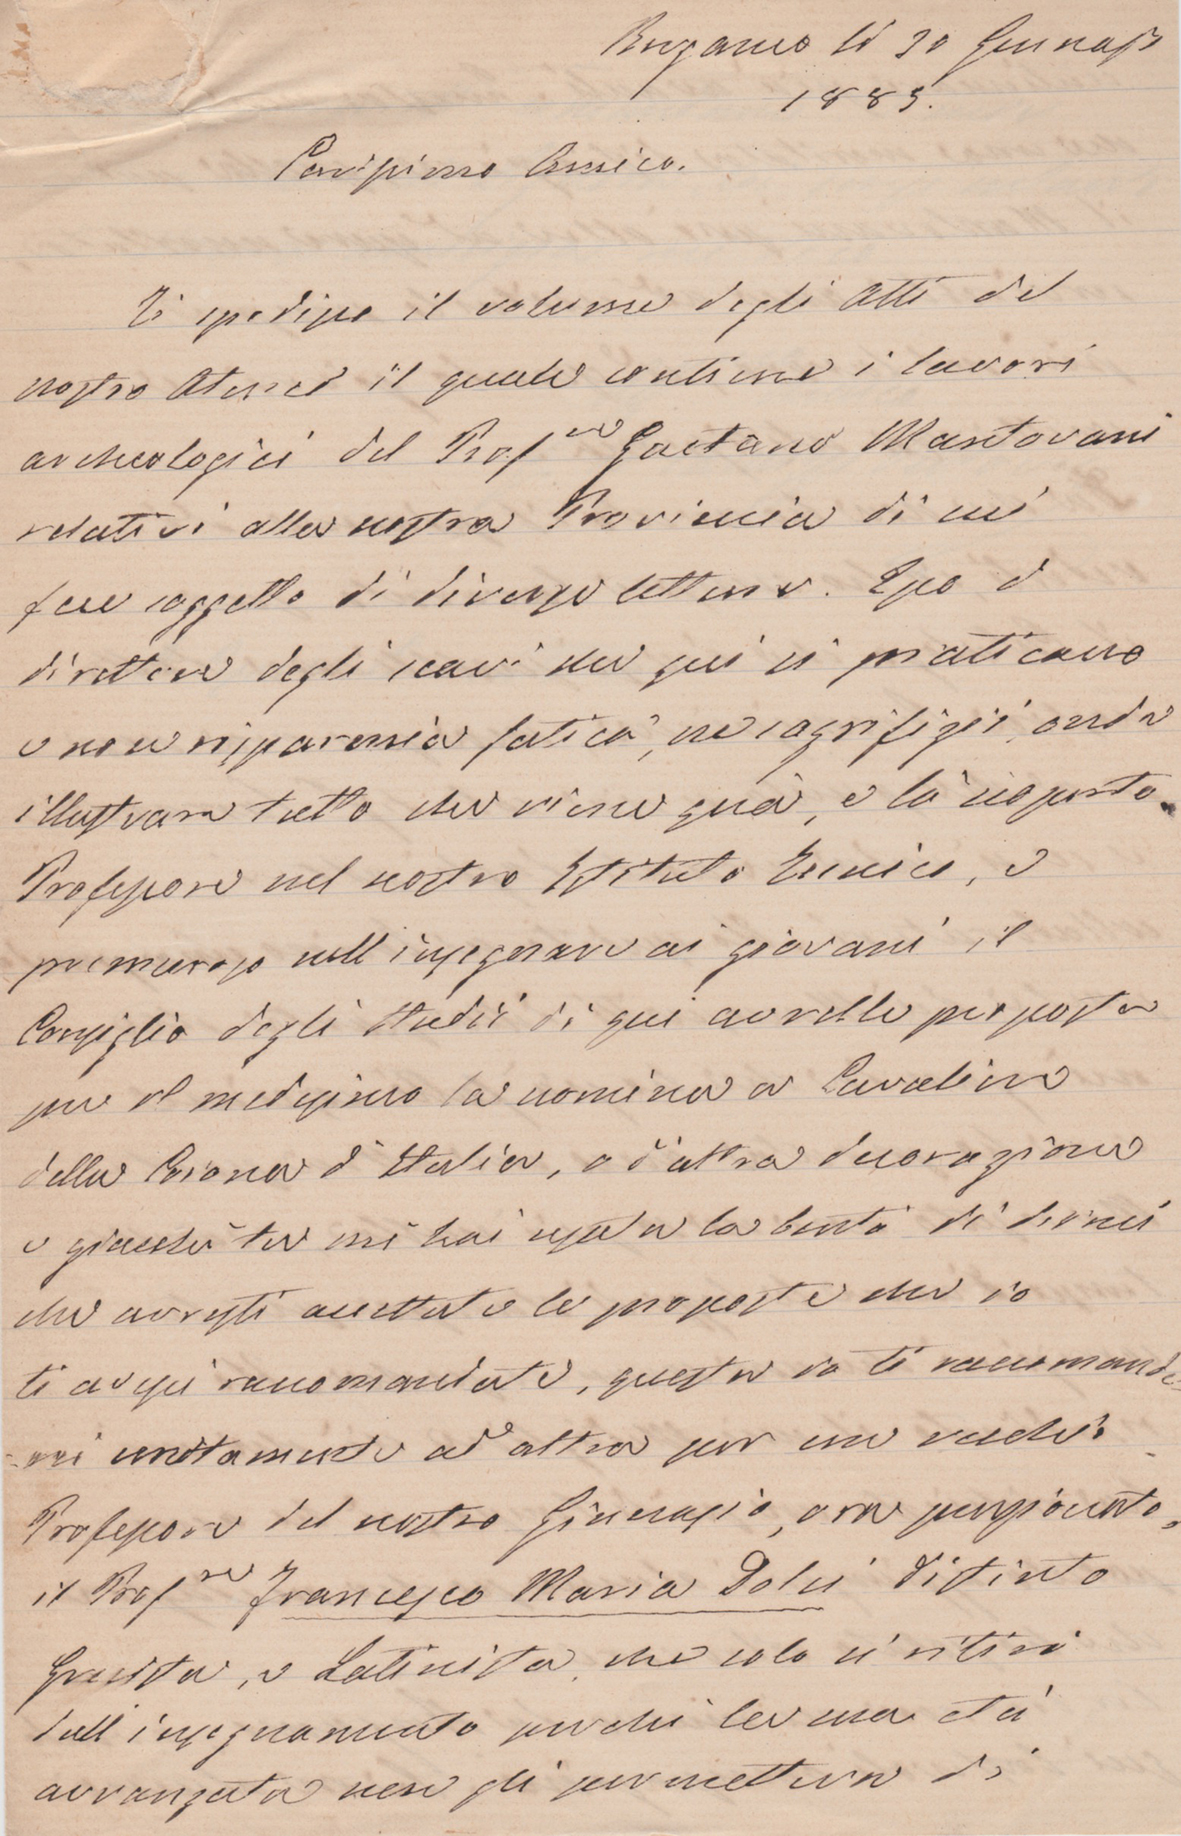 Bergamo lì 30 Gennajo
1885.
Carissimo Amico.
Ti spedisco il volume degli Atti del
nostro Ateneo il quale contiene i lavori
archeologici del Prof.re Gaetano Mantovani
relativi alla nostra Provincia di cui
fece soggetto di diverse letture. Esso è
direttore degli scavi che qui si praticano
e non risparmia fatica, ne sagrifizii, onde
illustrare tutto che viene quà, e là scoperto.
Professore nel nostro Istituto Tecnico, e
premuroso nell'insegnare ai giovani il
Consiglio degli Studii di qui avrebbe proposta
per il medesimo la nomina a Cavaliere
della Corona d'Italia, o d'altra decorazione
e giacchè tu mi hai usata la bontà di dirmi
che avresti accettate le proposte che io
ti avessi raccomandate, questa io ti raccomande-
-rei unitamente ad altra per un vecchio
Professore del nostro Ginnasio, ora pensionato,
il Prof.re Francesco Maria Dolci distinto
Grecista, e Latinista, che solo si ritirò
dall'insegnamento perchè la sua età
avvanzata non gli permetteva di